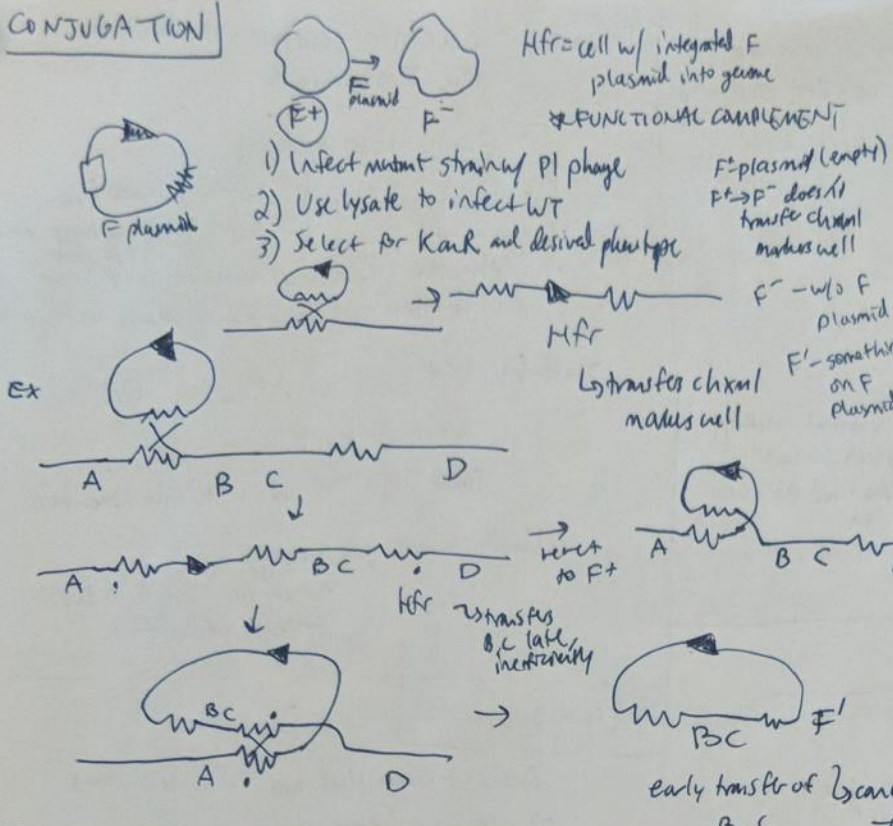 CONJUGATION
F plasmid
F+
F-
Hfr = cell w/ integrated F
plasmid into genome
*FUNCTIONAL COMPLEMENT
F plasmid
1) Infect mutant strain w/ P1 phage
2) Use lysate to infect WT
3) Select for KanR and desired phenotype
F+ plasmid (empty)
F+ → F- doesn't
transfer chxml
markers well
F- - w/o F
plasmid
F' - somethin
on F
plasmid
→
Hfr
↳ transfers chxml
makers well
Ex
A B C D
↓
A BC D
Hfr
→
revert
to F+
A B C
↝ transfers
B,C late,
inefficiently
↓
BC
A D
→
BC
F'
early transfer of
B C